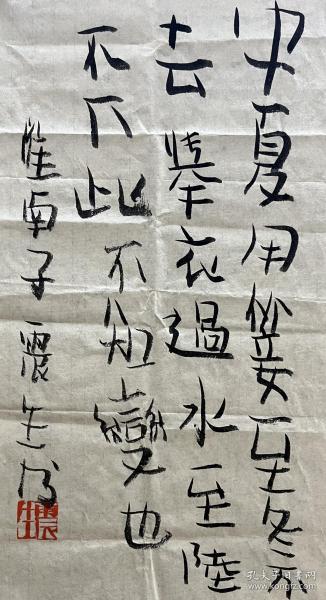 中夏用箑至冬不
去举衣過水至陸
不下此不知變也
淮南子 震生书
孔夫子旧书网
www.kongfz.com